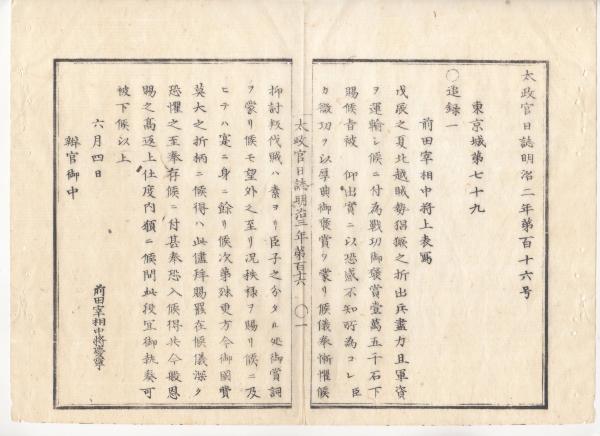 太政官日誌明治二年第百十六号
東京城第七十九
○追録一
前田宰相中将上表写
戊辰之夏北越賊勢猖獗之折出兵盡力且軍資
ヲ運輸シ候ニ付為戦功御褒賞壹萬五千石下
賜候旨被 仰出賞ニ以恐感不知所為コレ臣
カ微功ヲ以厚典御褒賞ヲ蒙リ候儀奉慚懼候
太政官日誌明治二年第百十六 ○一
抑討叛伐賊ハ素ヨリ臣子之分タル処御賞詞
ヲ蒙リ候モ望外之至リ況秩禄ヲ賜リ候ニ及
ヒテハ寔ニ身ニ餘リ候次第殊更方今御國費
莫大之折柄ニ候得ハ此儘拝賜罷在候儀深ク
恐懼之至奉存候ニ付甚奉恐入候得共今般恩
賜之高返上仕度内願ニ候間此段宜御執奏可
被下候以上
六月四日 前田宰相中将慶寧
辨官御中